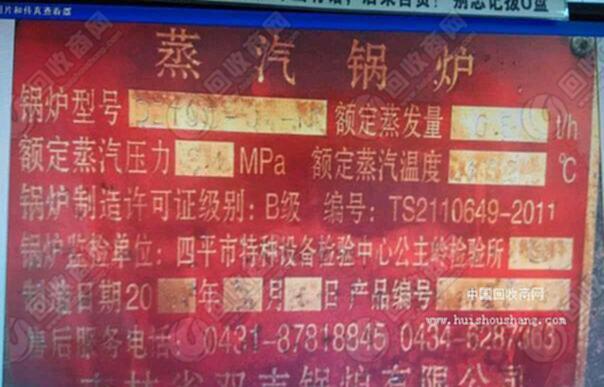 图片和传真查看器
别忘记拔U盘
蒸汽锅炉
锅炉型号 额定蒸发量 t/h
额定蒸汽压力 MPa 额定蒸汽温度 ℃
锅炉制造许可证级别: B级 编号: TS2110649-2011
锅炉监检单位: 四平市特种设备检验中心公主岭检验所
制造日期20 年 月 日 产品编号
中国回收商网
www.huishoushang.com
售后服务电话: 0431-87818845 0434-6287363
吉林省双吉锅炉有限公司